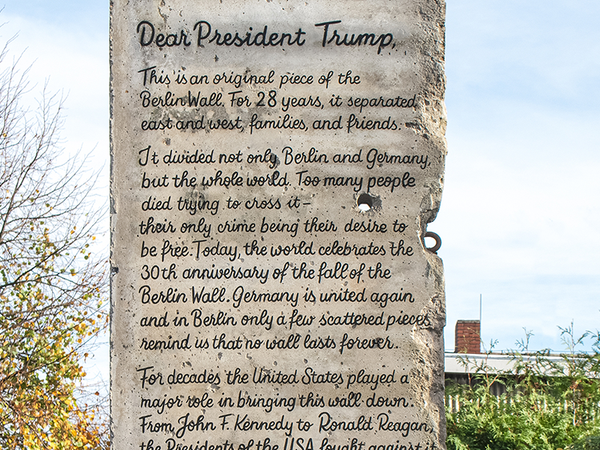 Dear President Trump,
This is an original piece of the
Berlin Wall. For 28 years, it separated
east and west, families, and friends.
It divided not only Berlin and Germany,
but the whole world. Too many people
died trying to cross it –
their only crime being their desire to
be free. Today, the world celebrates the
30th anniversary of the fall of the
Berlin Wall. Germany is united again
and in Berlin only a few scattered pieces
remind us that no wall lasts forever.
For decades the United States played a
major role in bringing this wall down.
From John F. Kennedy to Ronald Reagan,
the Presidents of the USA fought against it